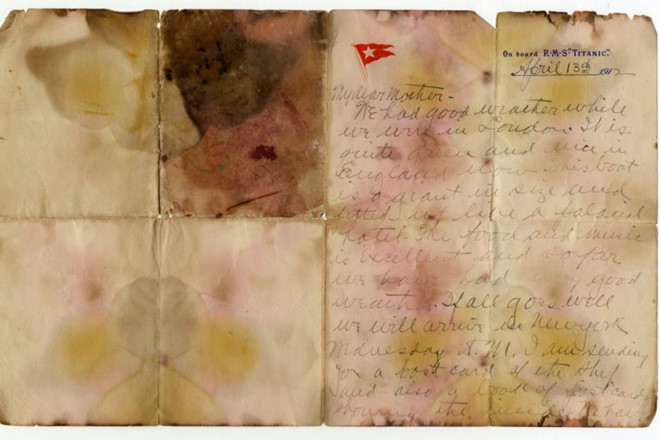 On board R·M·S "TITANIC".
April 13th 1912
My dear Mother-
We had good weather while
we were in London. It is
quite green and nice in
England now. This boat
is a giant in size and
fitted up like a palacial
hotel. The food and music
is excellent and so far
we have had good
weather. If all goes well
we will arrive in New York
Wednesday A.M. I am sending
you a post card of the ship
and also a book of post card
showing the inside